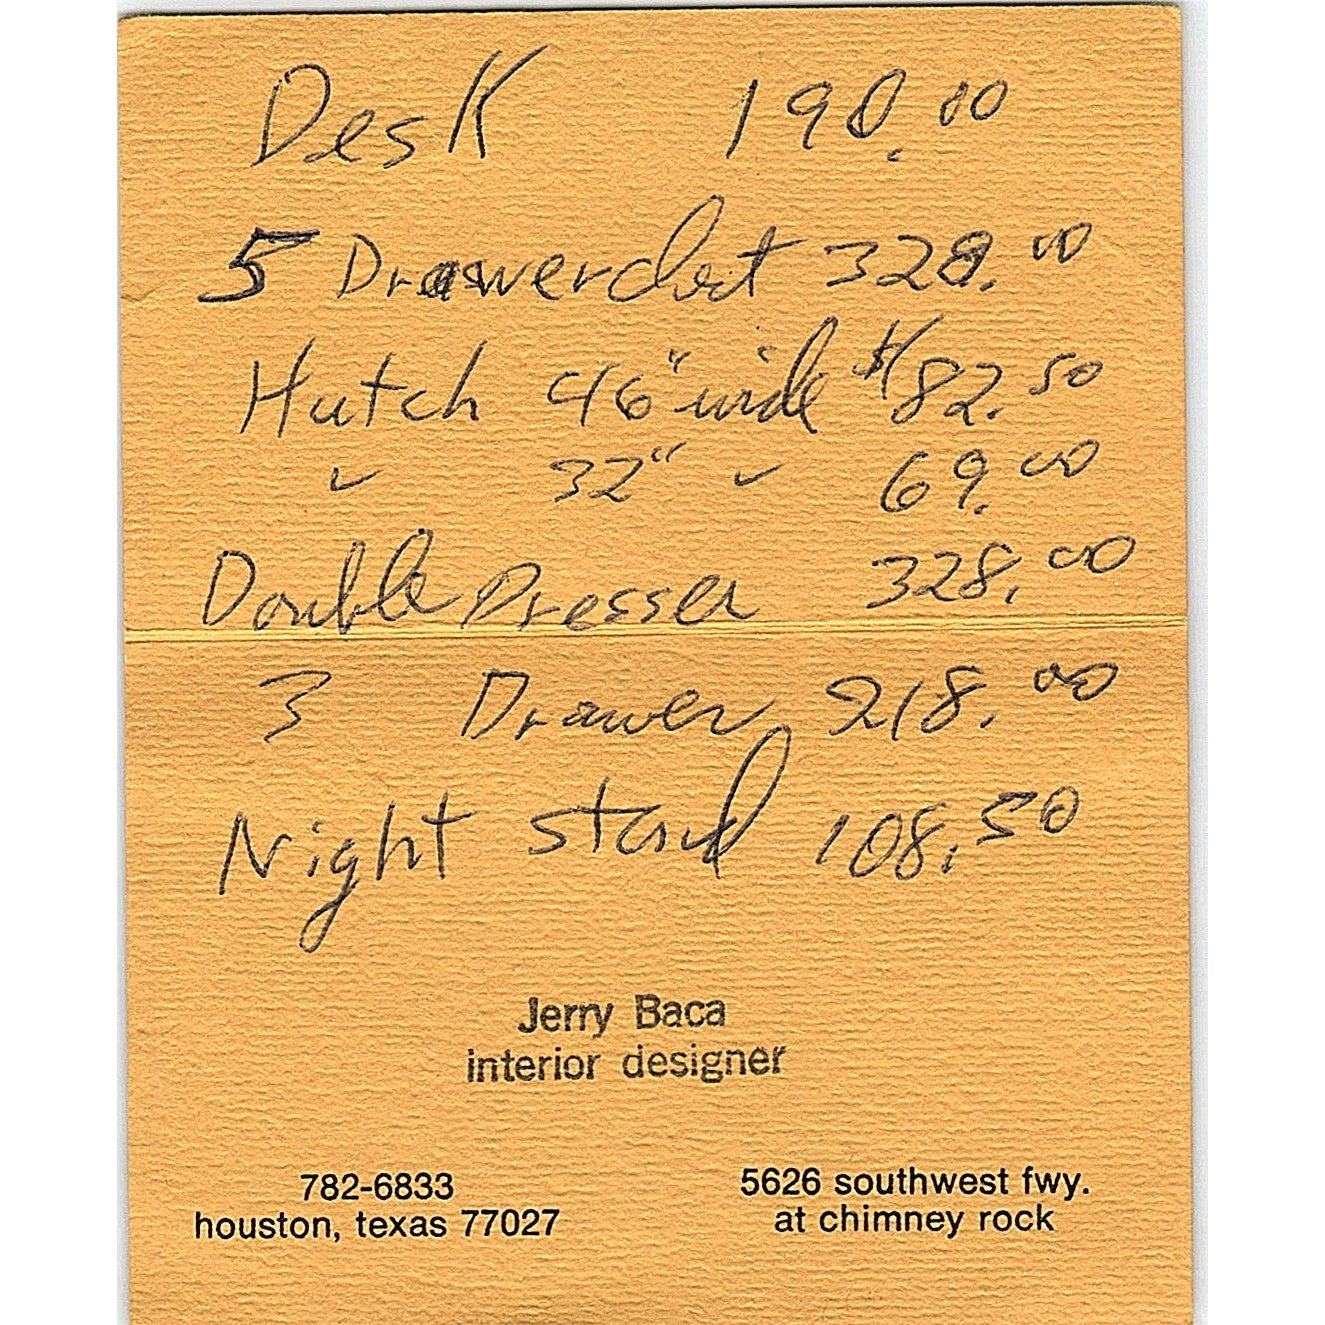 Desk 190.00
5 Drawer chest 328.00
Hutch 46" wide $182.50
" 32" " 69.00
Double Dresser 328.00
3 Drawer 218.00
Night stand 108.50
Jerry Baca
interior designer
782-6833
houston, texas 77027
5626 southwest fwy.
at chimney rock